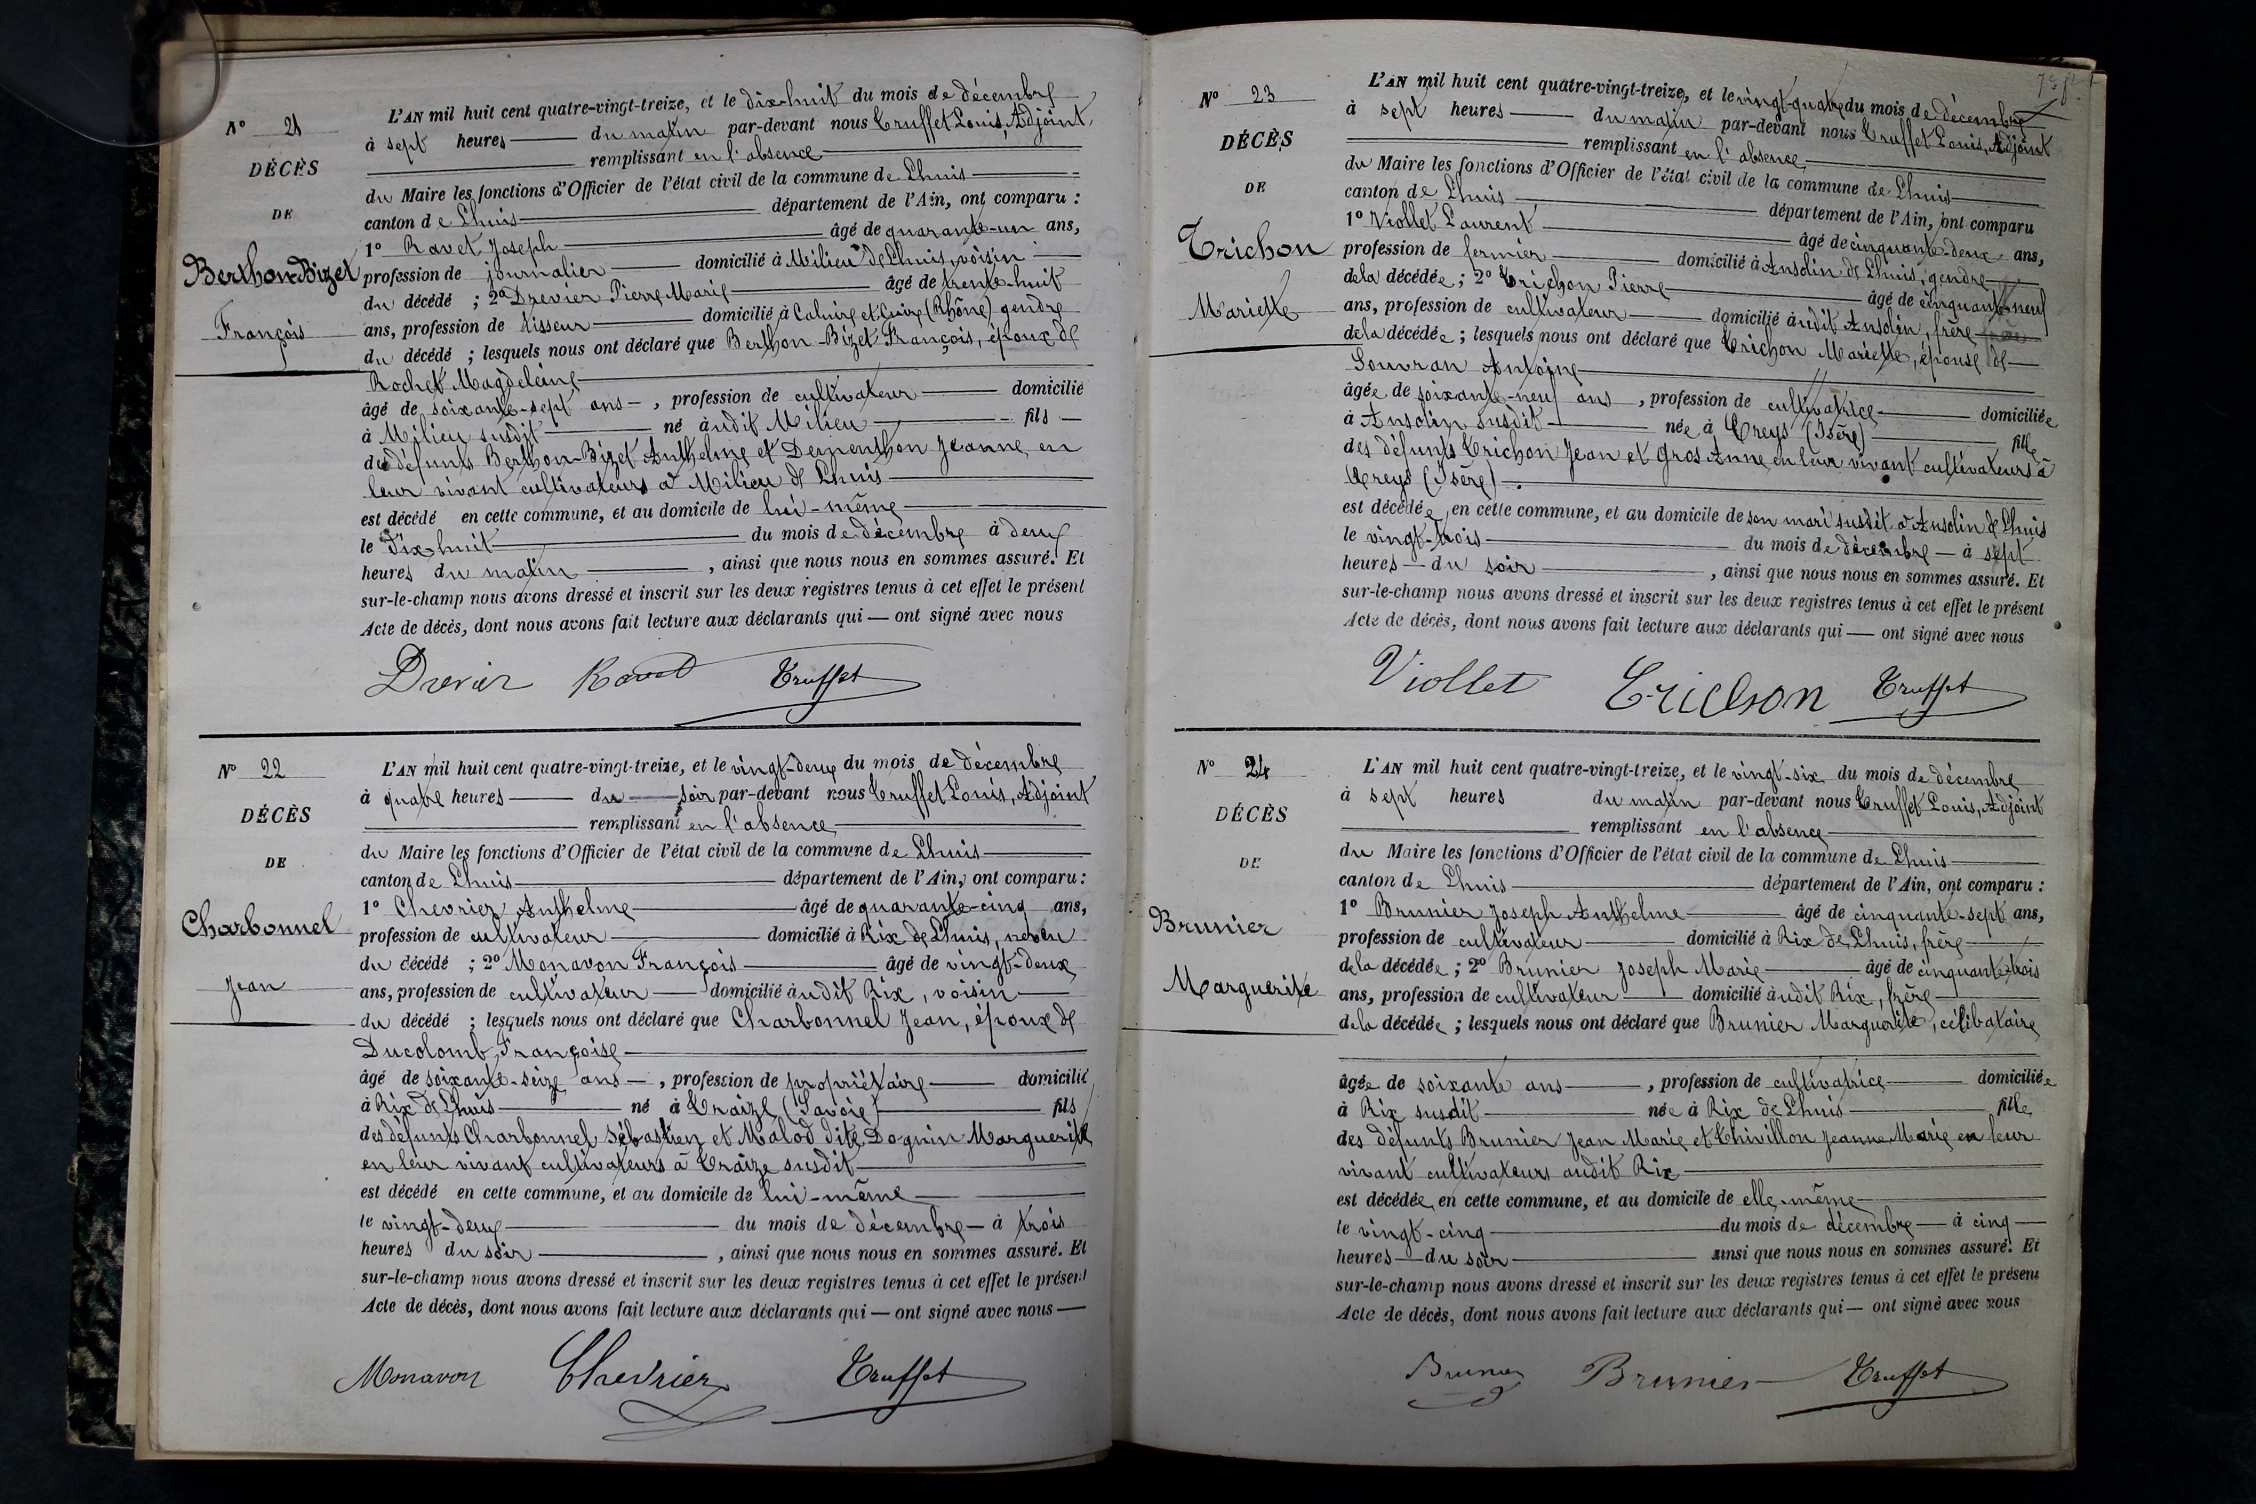 N° 21
DÉCÈS
DE
Berthon-Bizet
François
L'AN mil huit cent quatre-vingt-treize, et le dix-huit du mois de décembre
à sept heures du matin par-devant nous Truffet Louis, Adjoint
remplissant en l'absence
du Maire les fonctions d'Officier de l'état civil de la commune de Lhuis
canton de Lhuis département de l'Ain, ont comparu :
1° Ravet Joseph âgé de quarante-un ans,
profession de journalier domicilié à Milieu de Lhuis, voisin
du décédé ; 2° Drevier Pierre Marie âgé de trente-huit
ans, profession de tisseur domicilié à Caluire et Cuire (Rhône) gendre
du décédé ; lesquels nous ont déclaré que Berthon-Bizet François, époux de
Rochet Magdeleine
âgé de soixante-sept ans, profession de cultivateur domicilié
à Milieu susdit né audit Milieu fils
des défunts Berthon-Bizet Anthelme et Dementhon Jeanne en
leur vivant cultivateurs à Milieu de Lhuis
est décédé en cette commune, et au domicile de lui-même
le dix-huit du mois de décembre à deux
heures du matin, ainsi que nous nous en sommes assuré. Et
sur-le-champ nous avons dressé et inscrit sur les deux registres tenus à cet effet le présent
Acte de décès, dont nous avons fait lecture aux déclarants qui — ont signé avec nous
Drevier Ravet Truffet
N° 22
DÉCÈS
DE
Charbonnel
Jean
L'AN mil huit cent quatre-vingt-treize, et le vingt-deux du mois de décembre
à quatre heures du soir par-devant nous Truffet Louis, Adjoint
remplissant en l'absence
du Maire les fonctions d'Officier de l'état civil de la commune de Lhuis
canton de Lhuis département de l'Ain, ont comparu :
1° Chevrier Anthelme âgé de quarante-cinq ans,
profession de cultivateur domicilié à Rix de Lhuis, neveu
du décédé ; 2° Monavon François âgé de vingt-deux
ans, profession de cultivateur domicilié audit Rix, voisin
du décédé ; lesquels nous ont déclaré que Charbonnel Jean, époux de
Ducolomb Françoise
âgé de soixante-seize ans, profession de propriétaire domicilié
à Rix de Lhuis né à Traize (Savoie) fils
des défunts Charbonnel Sébastien et Malod dite Dognin Marguerite
en leur vivant cultivateurs à Traize susdit
est décédé en cette commune, et au domicile de lui-même
le vingt-deux du mois de décembre à trois
heures du soir, ainsi que nous nous en sommes assuré. Et
sur-le-champ nous avons dressé et inscrit sur les deux registres tenus à cet effet le présent
Acte de décès, dont nous avons fait lecture aux déclarants qui — ont signé avec nous
Monavon Chevrier Truffet
N° 23
DÉCÈS
DE
Trichon
Mariette
L'AN mil huit cent quatre-vingt-treize, et le vingt-quatre du mois de décembre
à sept heures du matin par-devant nous Truffet Louis, Adjoint
remplissant en l'absence
du Maire les fonctions d'Officier de l'état civil de la commune de Lhuis
canton de Lhuis département de l'Ain, ont comparu
1° Viollet Laurent âgé de cinquante-deux ans,
profession de fermier domicilié à Ansolin de Lhuis, gendre
de la décédée ; 2° Trichon Pierre âgé de cinquante-neuf
ans, profession de cultivateur domicilié audit Ansolin, frère
de la décédée ; lesquels nous ont déclaré que Trichon Mariette, épouse de
Souvran Antoine
âgée de soixante-neuf ans, profession de cultivatrice domiciliée
à Ansolin susdit née à Creys (Isère) fille
des défunts Trichon Jean et Gros Anne en leur vivant cultivateurs à
Creys (Isère).
est décédée, en cette commune, et au domicile de son mari susdit à Ansolin de Lhuis
le vingt-trois du mois de décembre à sept
heures du soir, ainsi que nous nous en sommes assuré. Et
sur-le-champ nous avons dressé et inscrit sur les deux registres tenus à cet effet le présent
Acte de décès, dont nous avons fait lecture aux déclarants qui — ont signé avec nous
Viollet Trichon Truffet
N° 24
DÉCÈS
DE
Brunier
Marguerite
L'AN mil huit cent quatre-vingt-treize, et le vingt-six du mois de décembre
à sept heures du matin par-devant nous Truffet Louis, Adjoint
remplissant en l'absence
du Maire les fonctions d'Officier de l'état civil de la commune de Lhuis
canton de Lhuis département de l'Ain, ont comparu :
1° Brunier Joseph Anthelme âgé de cinquante-sept ans,
profession de cultivateur domicilié à Rix de Lhuis, frère
de la décédée ; 2° Brunier Joseph Marie âgé de cinquante-trois
ans, profession de cultivateur domicilié audit Rix, frère
de la décédée ; lesquels nous ont déclaré que Brunier Marguerite, célibataire
âgée de soixante ans, profession de cultivatrice domiciliée
à Rix susdit née à Rix de Lhuis fille
des défunts Brunier Jean Marie et Thivillon Jeanne Marie en leur
vivant cultivateurs audit Rix
est décédée en cette commune, et au domicile de elle-même
le vingt-cinq du mois de décembre à cinq
heures du soir ainsi que nous nous en sommes assuré. Et
sur-le-champ nous avons dressé et inscrit sur les deux registres tenus à cet effet le présent
Acte de décès, dont nous avons fait lecture aux déclarants qui — ont signé avec nous
Brunier Brunier Truffet